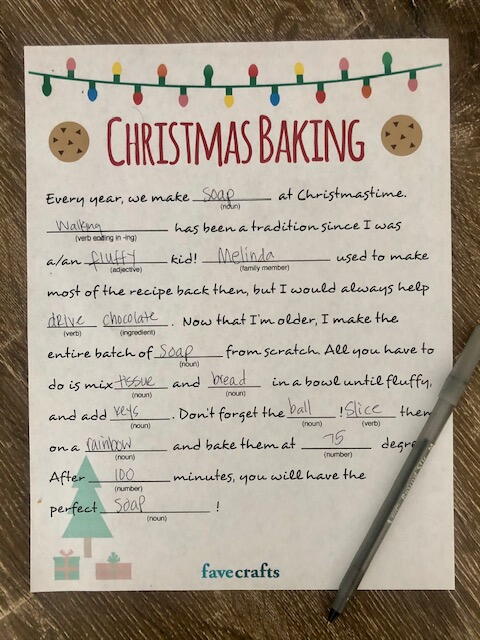 CHRISTMAS BAKING
Every year, we make soap at Christmastime.
(noun)
Walking has been a tradition since I was
(verb ending in -ing)
a/an fluffy kid! Melinda used to make
(adjective) (family member)
most of the recipe back then, but I would always help
drive chocolate. Now that I'm older, I make the
(verb) (ingredient)
entire batch of soap from scratch. All you have to
(noun)
do is mix tissue and bread in a bowl until fluffy,
(noun) (noun)
and add keys. Don't forget the ball! Slice them
(noun) (noun) (verb)
on a rainbow and bake them at 75 degre
(noun) (number)
After 100 minutes, you will have the
(number)
perfect soap!
(noun)
favecrafts